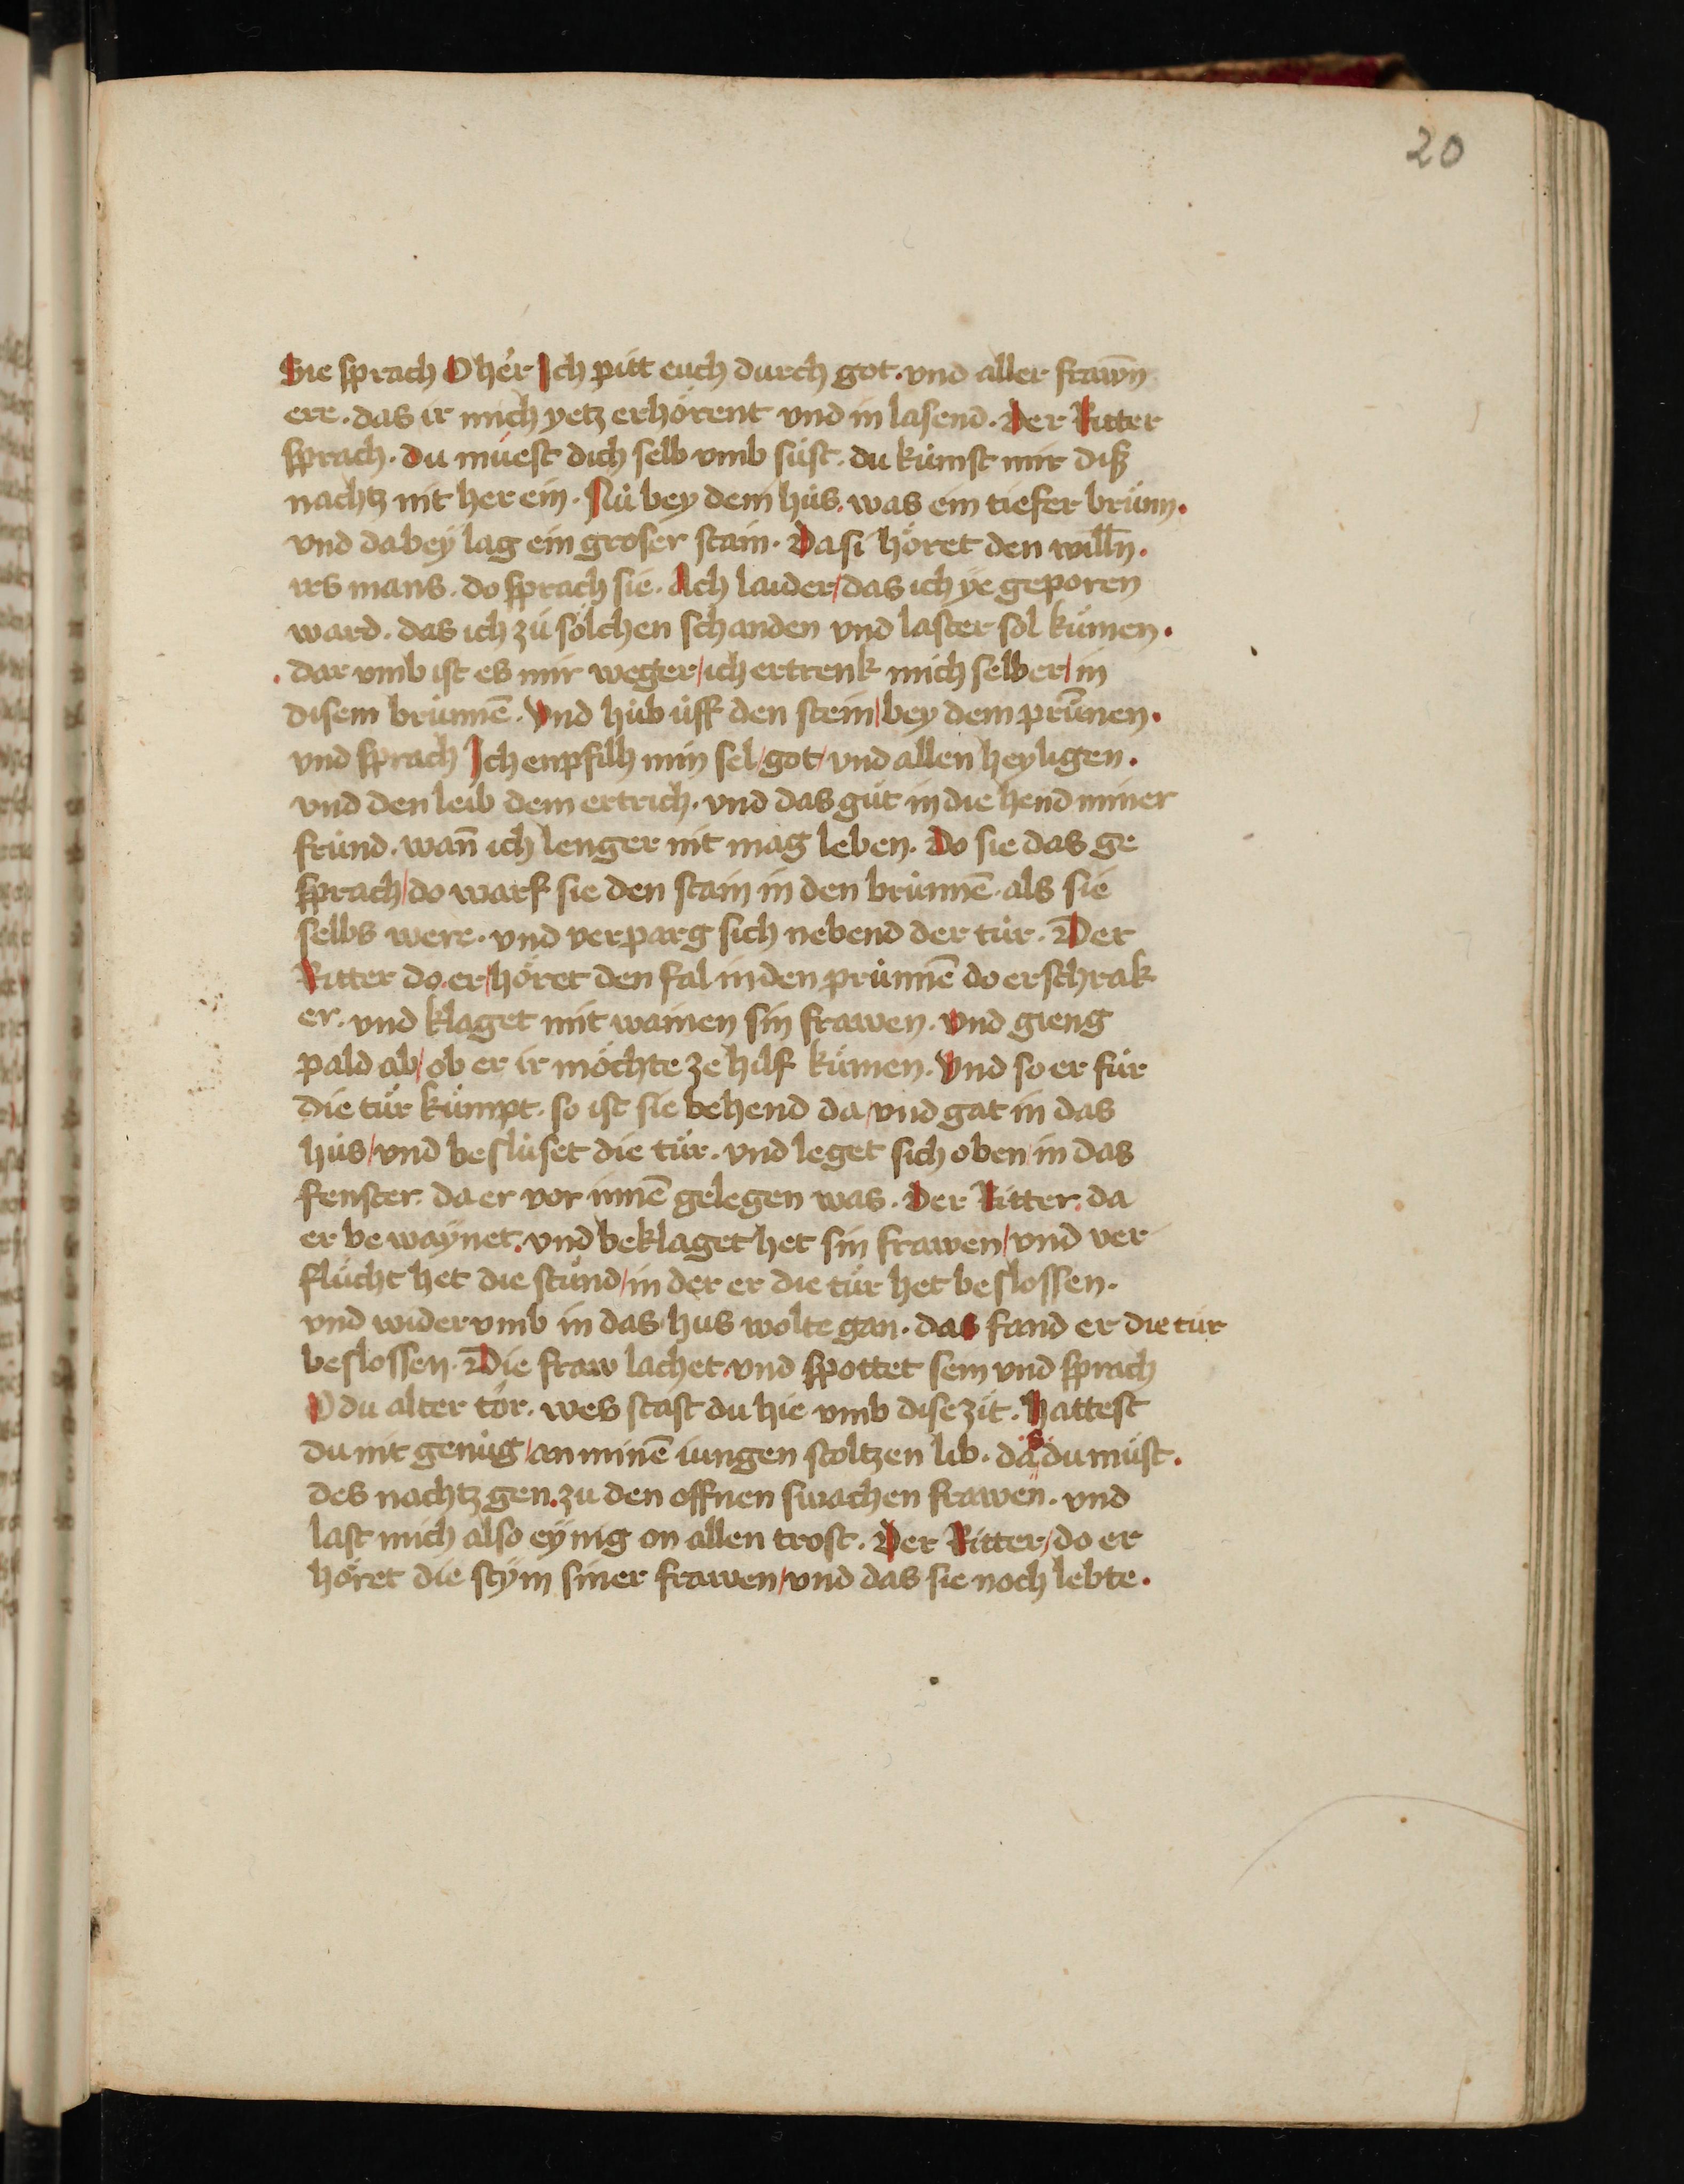 20
Sie sprach O her Ich pitt euch durch got. vnd aller frawn̄
ere. das ir mich yetz erhörent vnd in lasend. Der Ritter
sprach. du müest dich selb vmb süst. du kümst mir diß
nachtz nit her ein. Nü bey dem hüs. was ein tiefer brünn.
vnd dabey lag ein groser stain. Da si höret den willn̄.
irs mans. do sprach sie. Ach laider/das ich ye geporen
ward. das ich zü sölchen schanden vnd laster sol kümen.
. dar vmb ist es mir weger/ich ertrenk mich selber/in
disem brünnē. Vnd hüb üff den stein/bey dem prün̄en.
vnd sprach Ich enpfilh min sel/got/vnd allen heyligen.
vnd den leib dem ertrich. vnd das güt in die hend miner
fründ. wan̄ ich lenger nit mag leben. Do sie das ge
sprach/do warf sie den stain in den brünnē. als sie
selbs were. vnd verparg sich nebend der tür. Der
Ritter do er/höret den fal in den prünnē do erschrak
er. vnd klaget mit wainen sin frawen. vnd gieng
pald ab/ob er ir möchte ze hilf kümen. Vnd so er für
die tür kümpt. so ist sie behend da/vnd gat in das
hüs/vnd beslüset die tür. vnd leget sich oben/in das
fenster. da er vor innē gelegen was. Der Ritter. da
er bewaynet. vnd beklaget het sin frawen/vnd ver
flücht het die stünd/in der er die tür het beslossen.
vnd widervmb in das hus wolte gan. das fand er die tür
beslossen. Die fraw lachet. vnd spottet sein vnd sprach
O du alter tör. wes stast du hie vmb dise zit. Hattest
du nit genüg/an minē iungen stoltzen lib. das du müst.
des nachtz gen. zu den offnen swachen frawen. vnd
last mich also eynig on allen trost. Der Ritter/do er
höret die stym siner frawen/vnd das sie noch lebte.